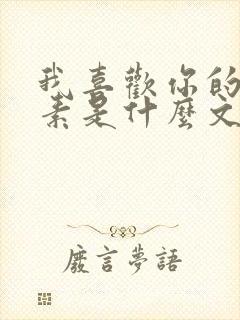 我喜歡你的
素是什麼文
廢言夢語